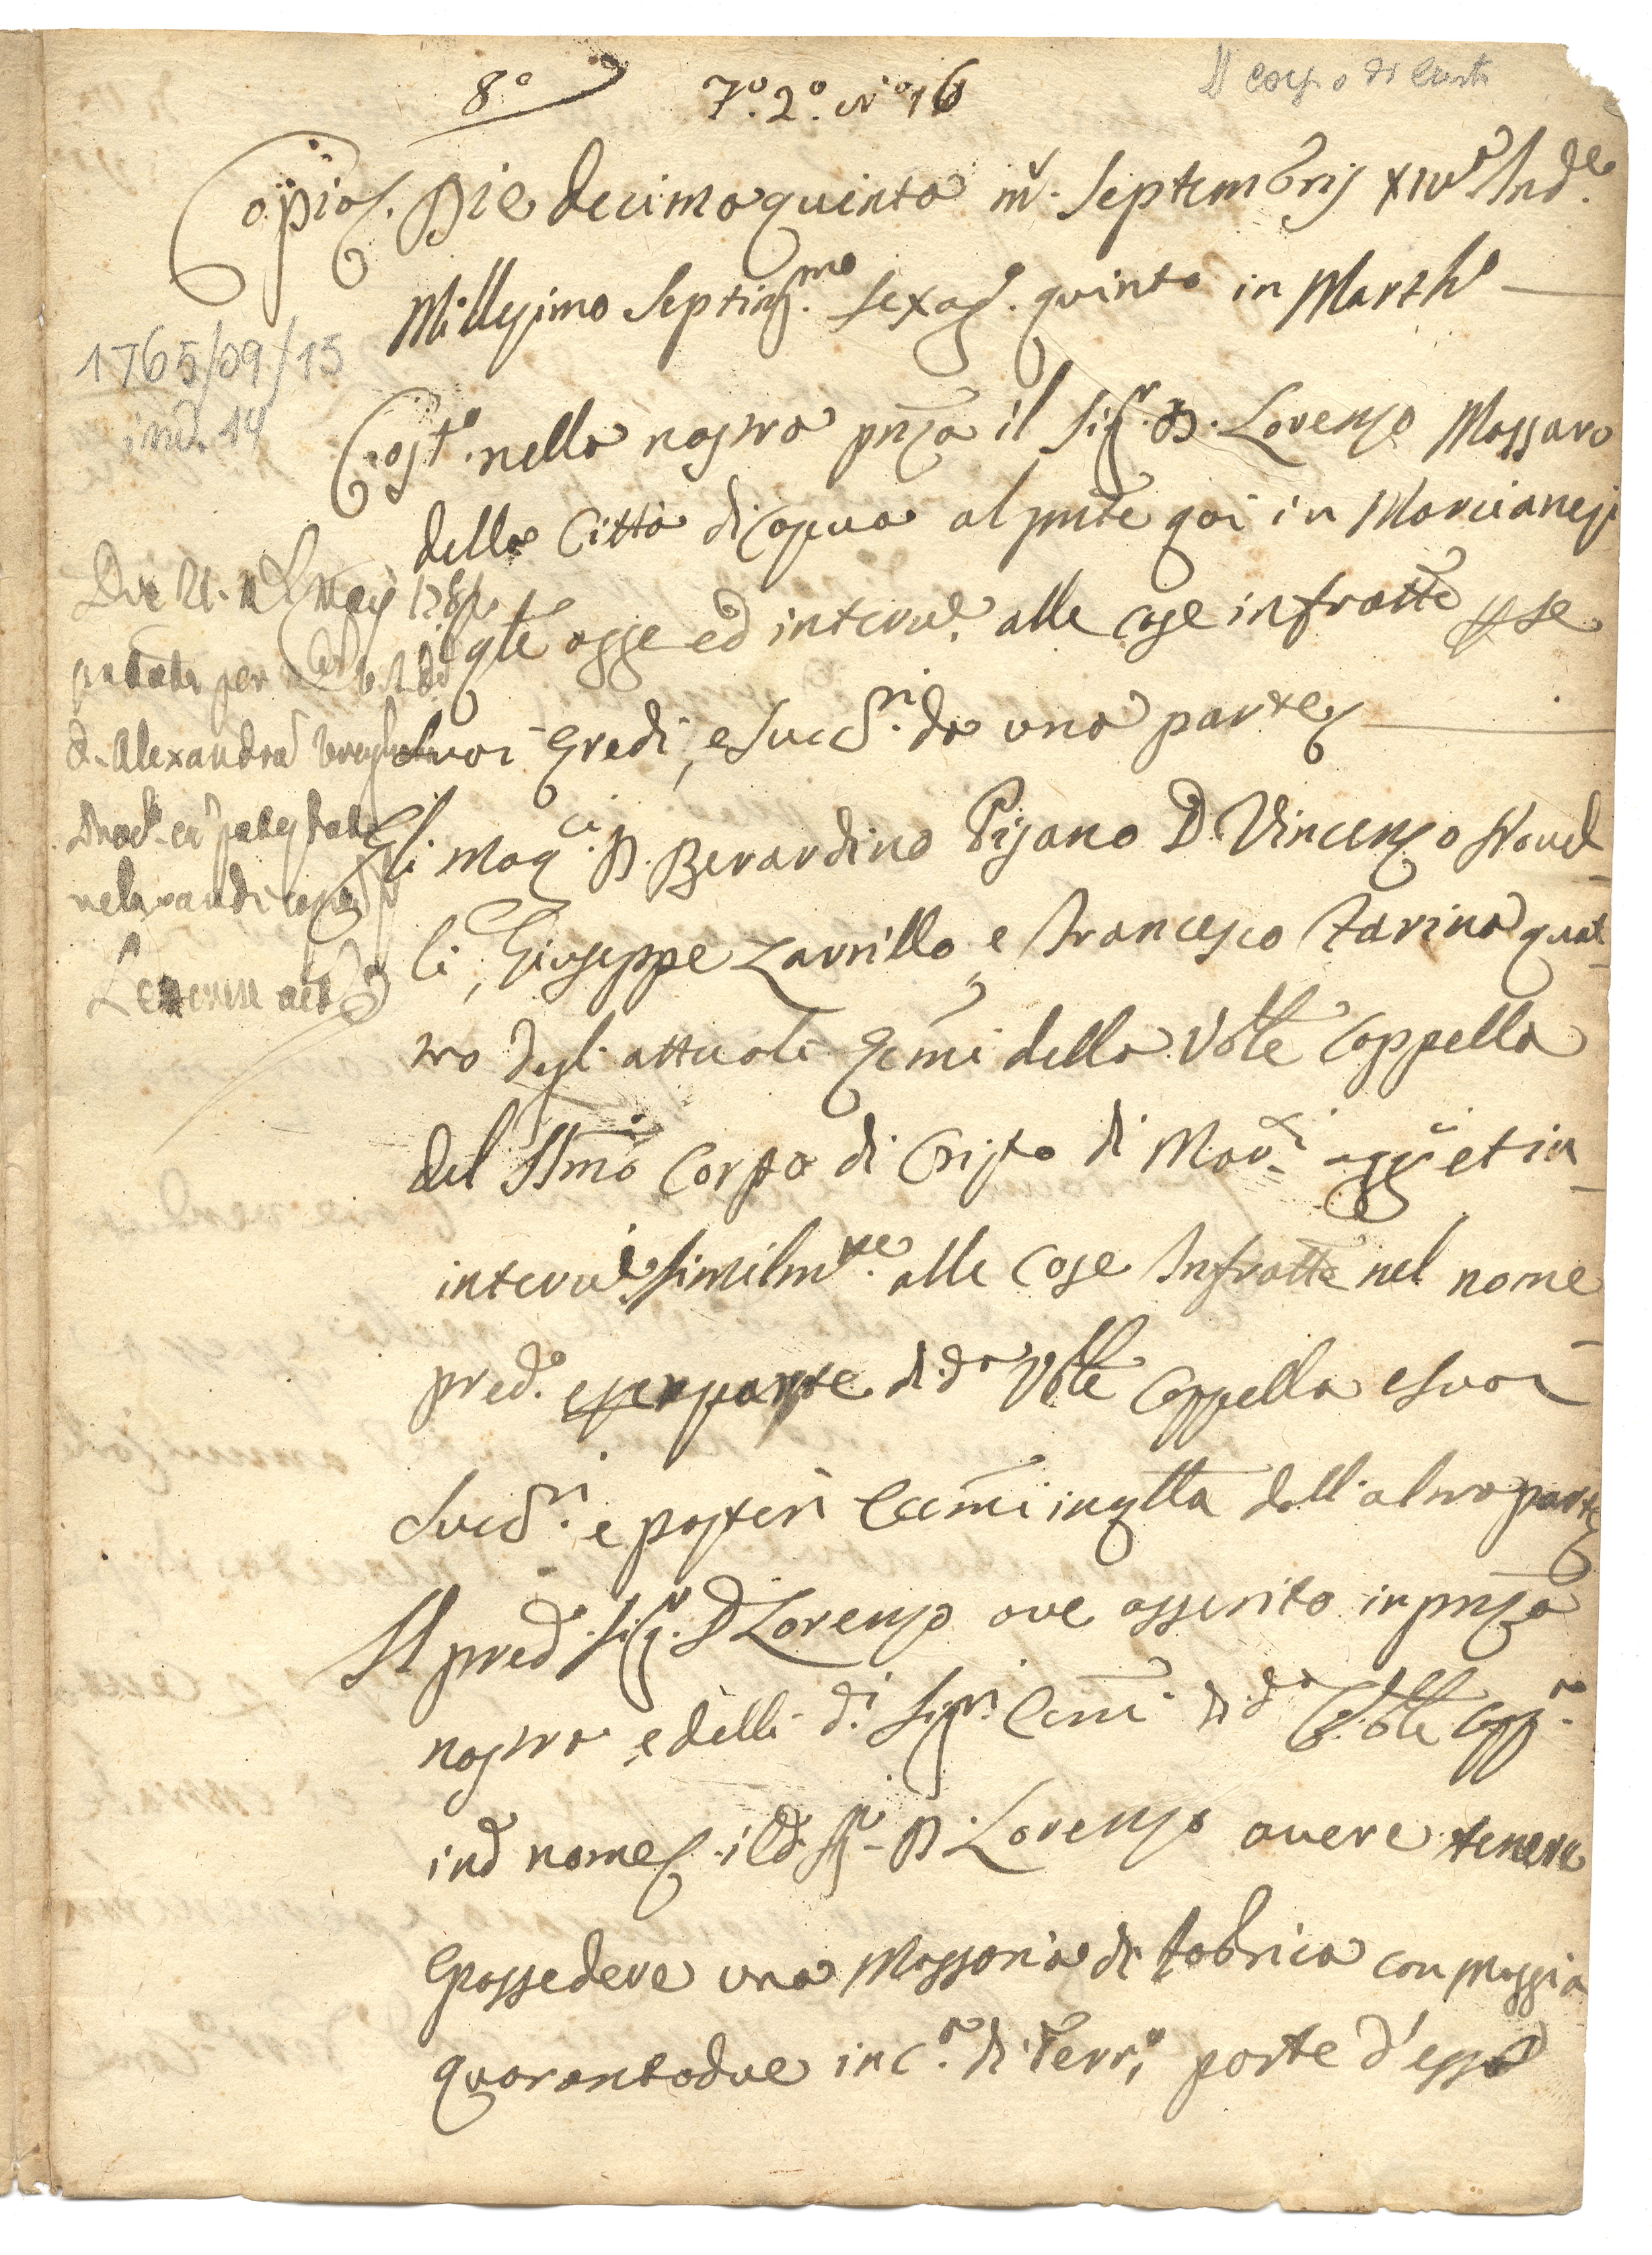 8°
7°. 2°. N° 16
Il corpo di Cristo
Copia. Die decimaquinta m. Septembris XIV Ind.e
Millesimo Septing.mo sexag. quinto in Marth.s
1765/09/15
ind. 14
Cost.o nella nostra pnza il Sig.r D. Lorenzo Massaro
della Città di Capua al pnte qui in Marcianesi
il qle agge ed interv.e alle cose infratte p se
suoi eredi, e Succ.ri da una parte
Gli mag.ci D. Berardino Pisano D. Vincenzo Novel
li, Giuseppe Zarrillo, e Francesco Farina quat
tro degl' attuali Ecmi della Vble Cappella
del SSmo Corpo di Cristo di Mar.si aggti et in
interv.i similm.te alle cose Infratte nel nome
pred.o e per parte di d.a Vble Cappella e suoi
Succ.ri e posteri Ecmi in qlla dall' altra parte
Il pred.o Sig.r D. Lorenzo ave asserito in pnza
nostra, e delli d.i Sig.ri Ecmi di d.a Vble Capp.a
in d.o nome il d.o Sig.r D. Lorenzo avere tenere
e possedere una Massaria di fabrica con moggia
quarantadue in c.a di Terr.o parte d'esso
Die 21. m. Maij 178
per
d. Alexandra